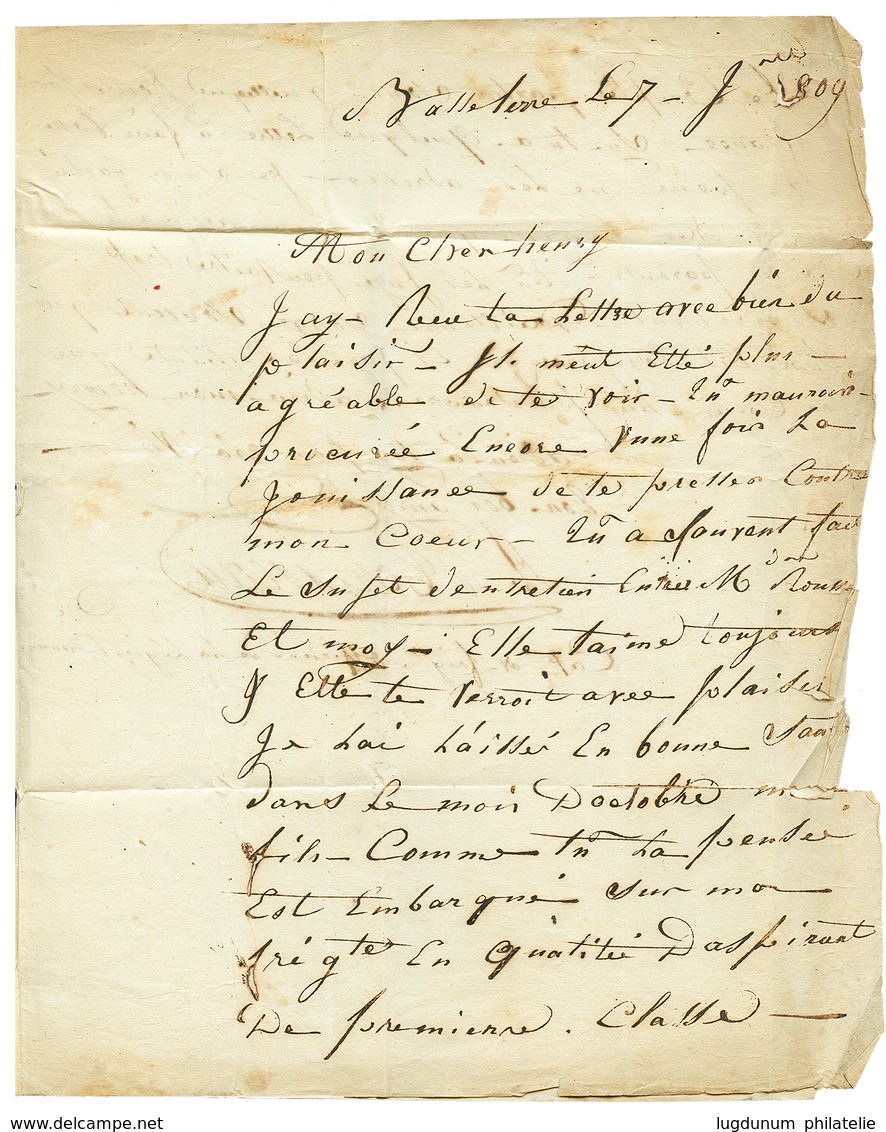 Basseterre Le 7 - J 1809
Mon Cher henry
J'ay - Recu ta Lettre avec bien du
plaisir - Il meut Etté plus -
agréable de te voir - Tu mauroi
procurée Encore Vune fois La
Jouissance de te presser Contre
mon Coeur - Tu a Souvent fait
Le Sujet dentretien Entre Mdme Rouss
Et moy - Elle taime toujours
Elle te verroit avec plaisir
Je Lai Láissée En bonne San
dans Le mois Doctobre
fils - Comme tu La pensée
Est Embarqué sur mon
frégte En Qualitée Daspirant
De premierre Classe -
www.delcampe.net
lugdunum philatelie